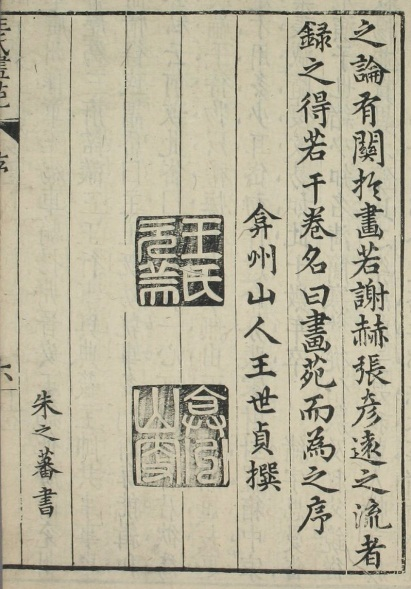 之論有關於畫若謝赫張彥遠之流者
録之得若干卷名曰畫苑而為之序
弇州山人王世貞撰
王氏元美
弇州山人
朱之蕃書
王氏畫苑
序
六